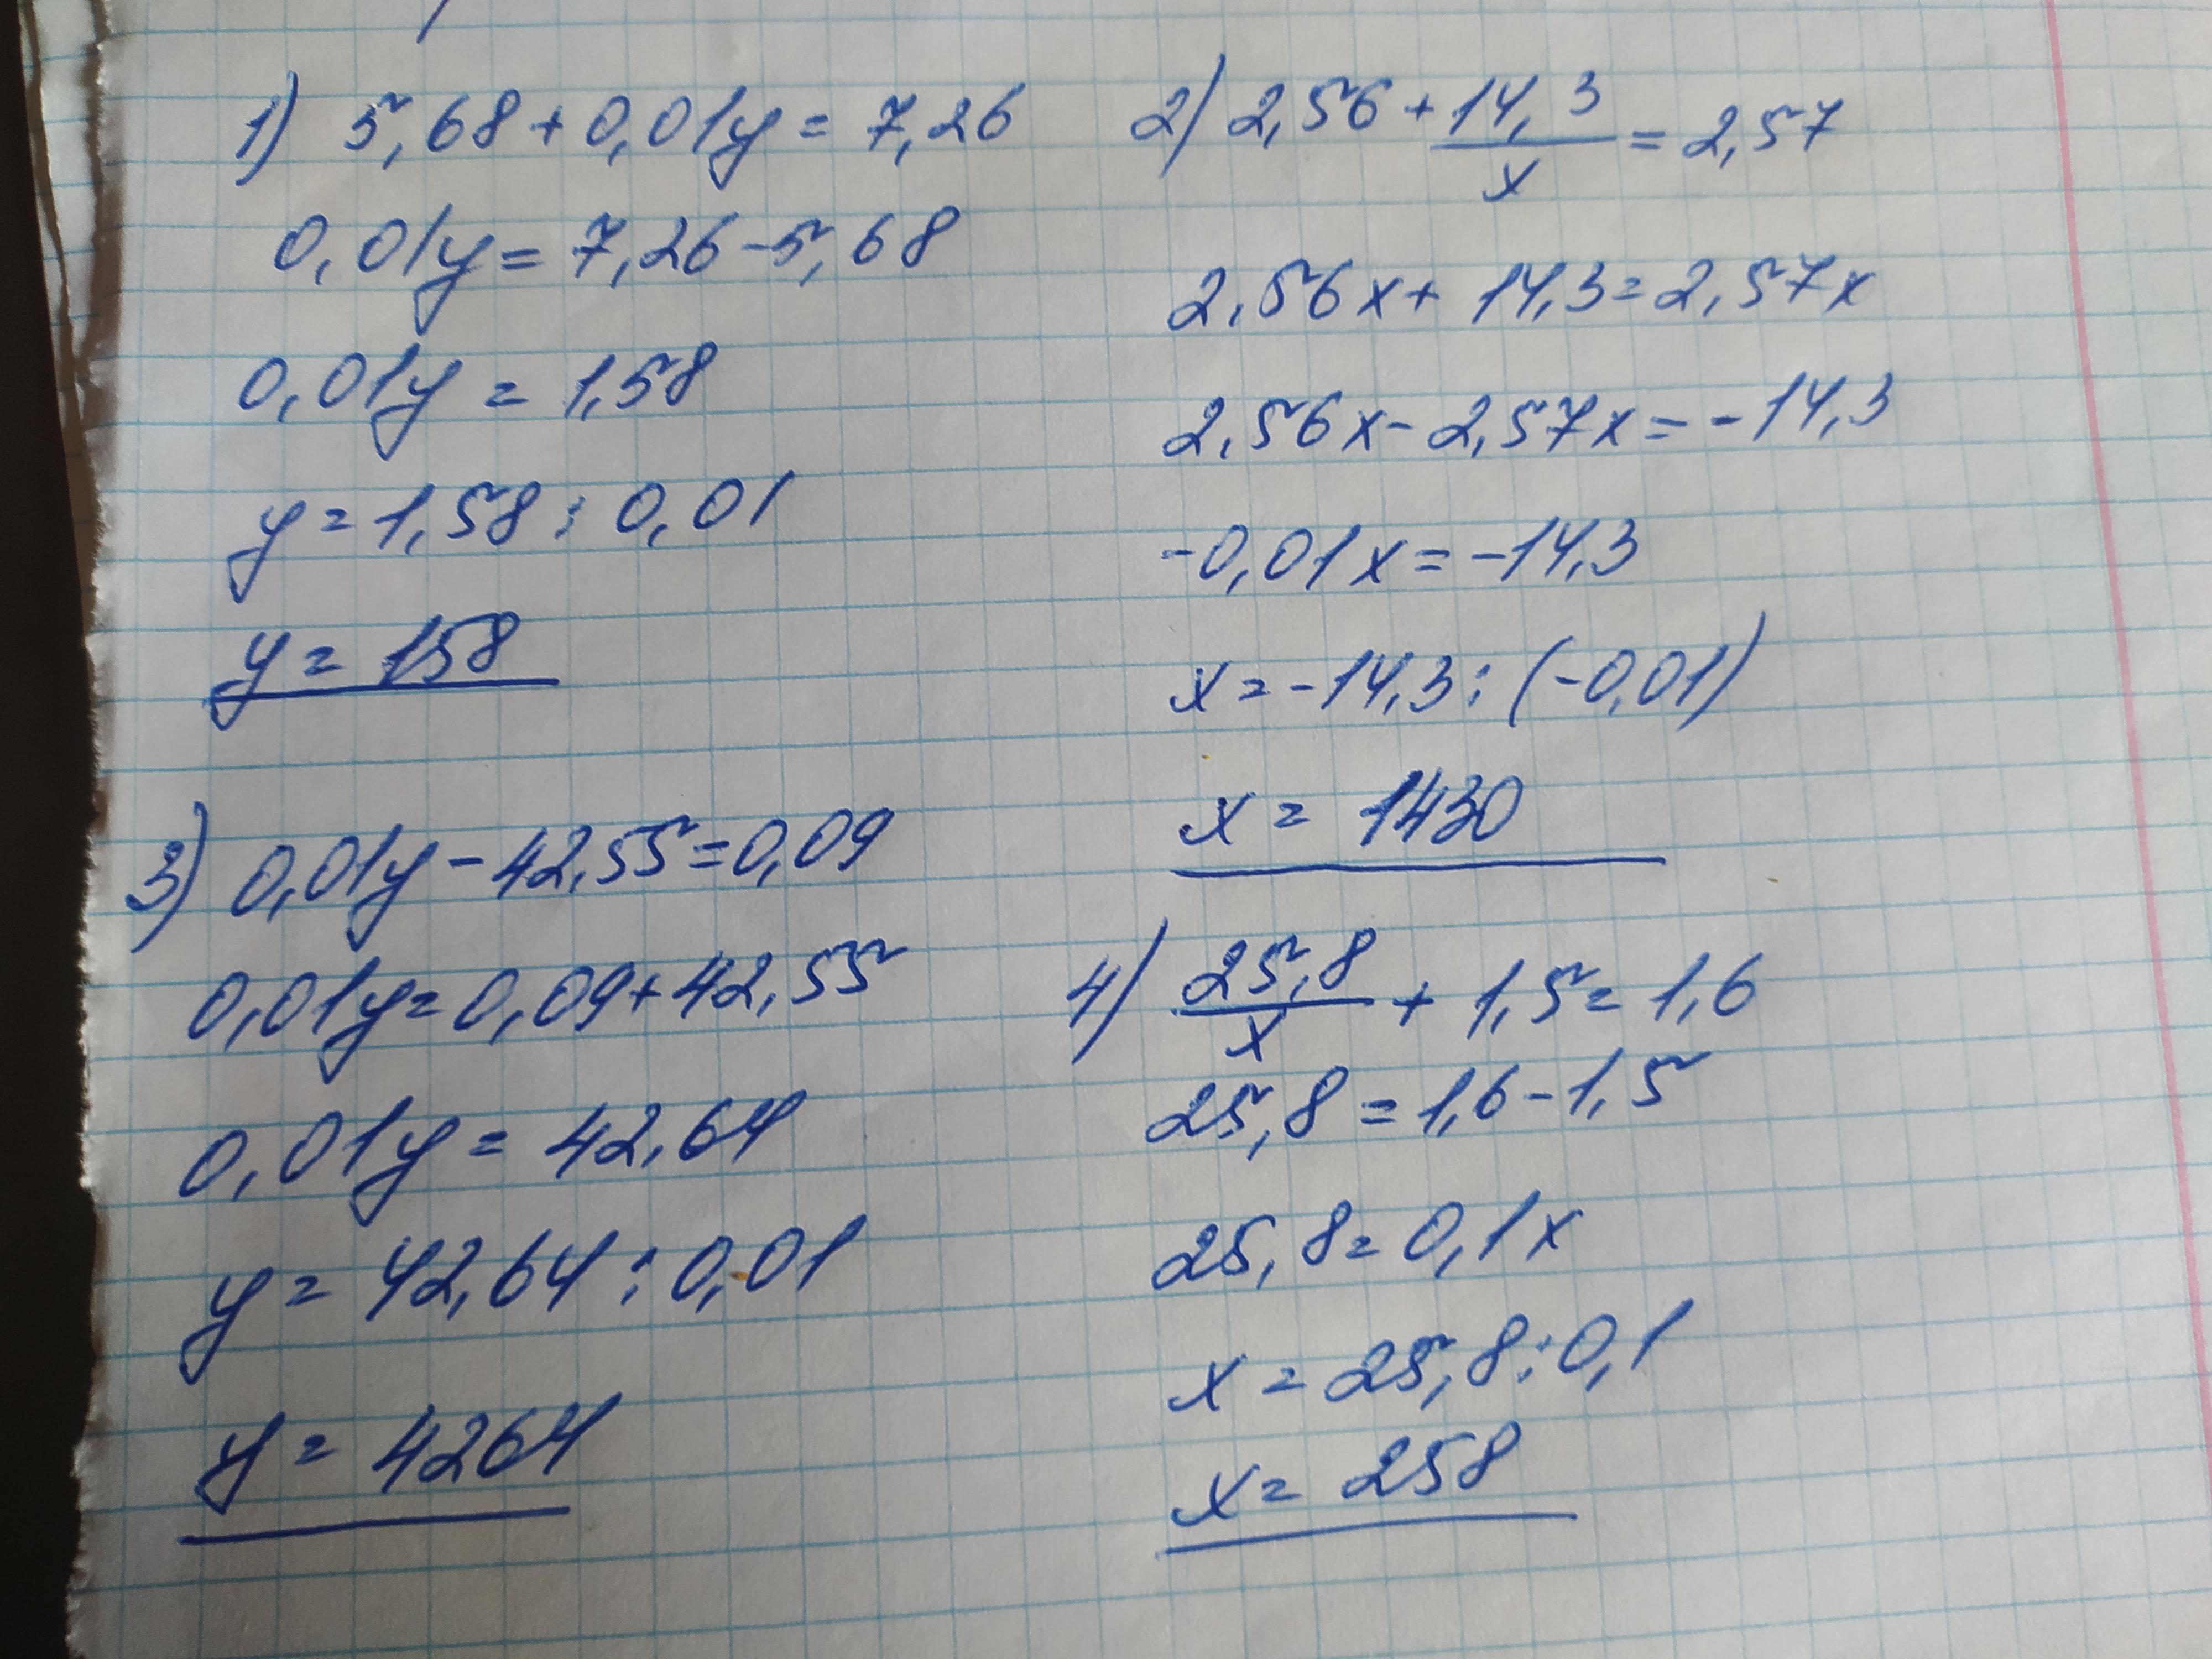 1) 5,68 + 0,01y = 7,26
0,01y = 7,26 - 5,68
0,01y = 1,58
y = 1,58 : 0,01
y = 158
2) 2,56 + 14,3/x = 2,57
2,56x + 14,3 = 2,57x
2,56x - 2,57x = -14,3
-0,01x = -14,3
x = -14,3 : (-0,01)
x = 1430
3) 0,01y - 42,55 = 0,09
0,01y = 0,09 + 42,55
0,01y = 42,64
y = 42,64 : 0,01
y = 4264
4) 25,8/x + 1,5 = 1,6
25,8 = 1,6 - 1,5
25,8 = 0,1x
x = 25,8 : 0,1
x = 258